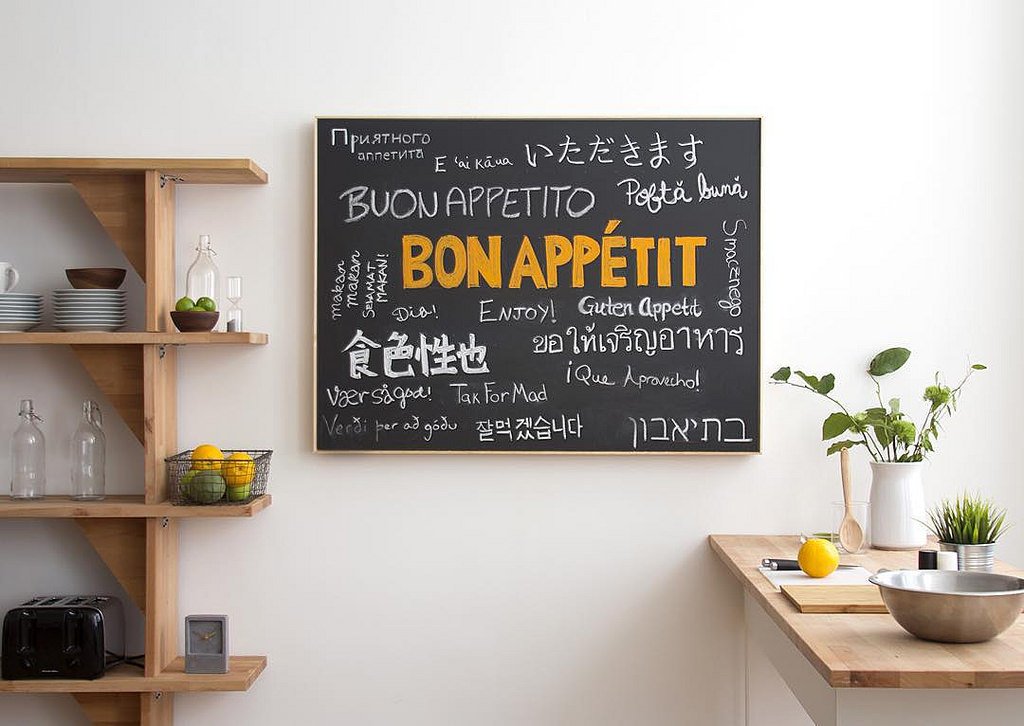 Приятного
аппетита
E 'ai kāua
いただきます
BUON APPETITO
Poftă bună
BON APPÉTIT
Smacznego
makan
makan
SELAMAT
MAKAN!
Dia!
ENJOY!
Guten Appetit
食色性也
ขอให้เจริญอาหาร
¡Que Aprovecho!
Vær sågod!
Tak For Mad
Verði þer að góðu
잘먹겠습니다
בתיאבון